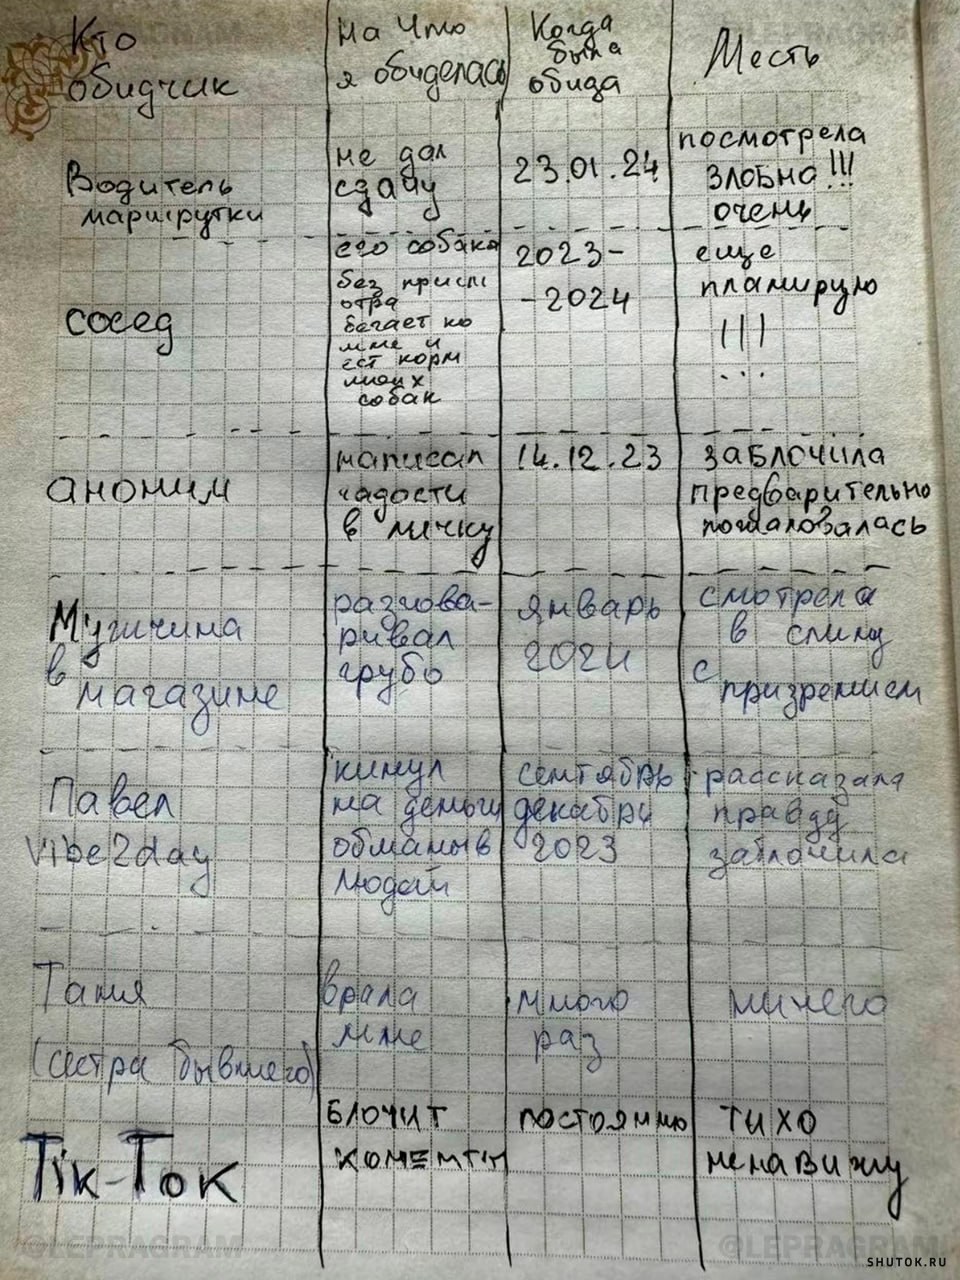 Кто
обидчик
На что
я обиделась
Когда
была
обида
Месть
Водитель
маршрутки
не дал
сдачу
23.01.24
посмотрела
злобно!!!
очень
сосед
его собака
без присм
отра
бегает ко
мне и
ест корм
моих
собак
2023-
-2024
еще
планирую
!!!
...
аноним
написал
гадости
в личку
14.12.23
заблочила
предварительно
пожаловалась
Мужчина
в
магазине
разгова-
ривал
грубо
январь
2024
смотрела
в спину
с
призрением
Павел
Vibe2day
кинул
на деньги
обманыв
людей
сентябрь
декабрь
2023
рассказала
правду
заблочила
Таня
(сестра бывшего)
врала
мне
много
раз
ничего
Tik-Tok
блочит
коменты
постоянно
тихо
ненавижу
@LEPRAGRAM
@LEPRAGRAM
SHUTOK.RU